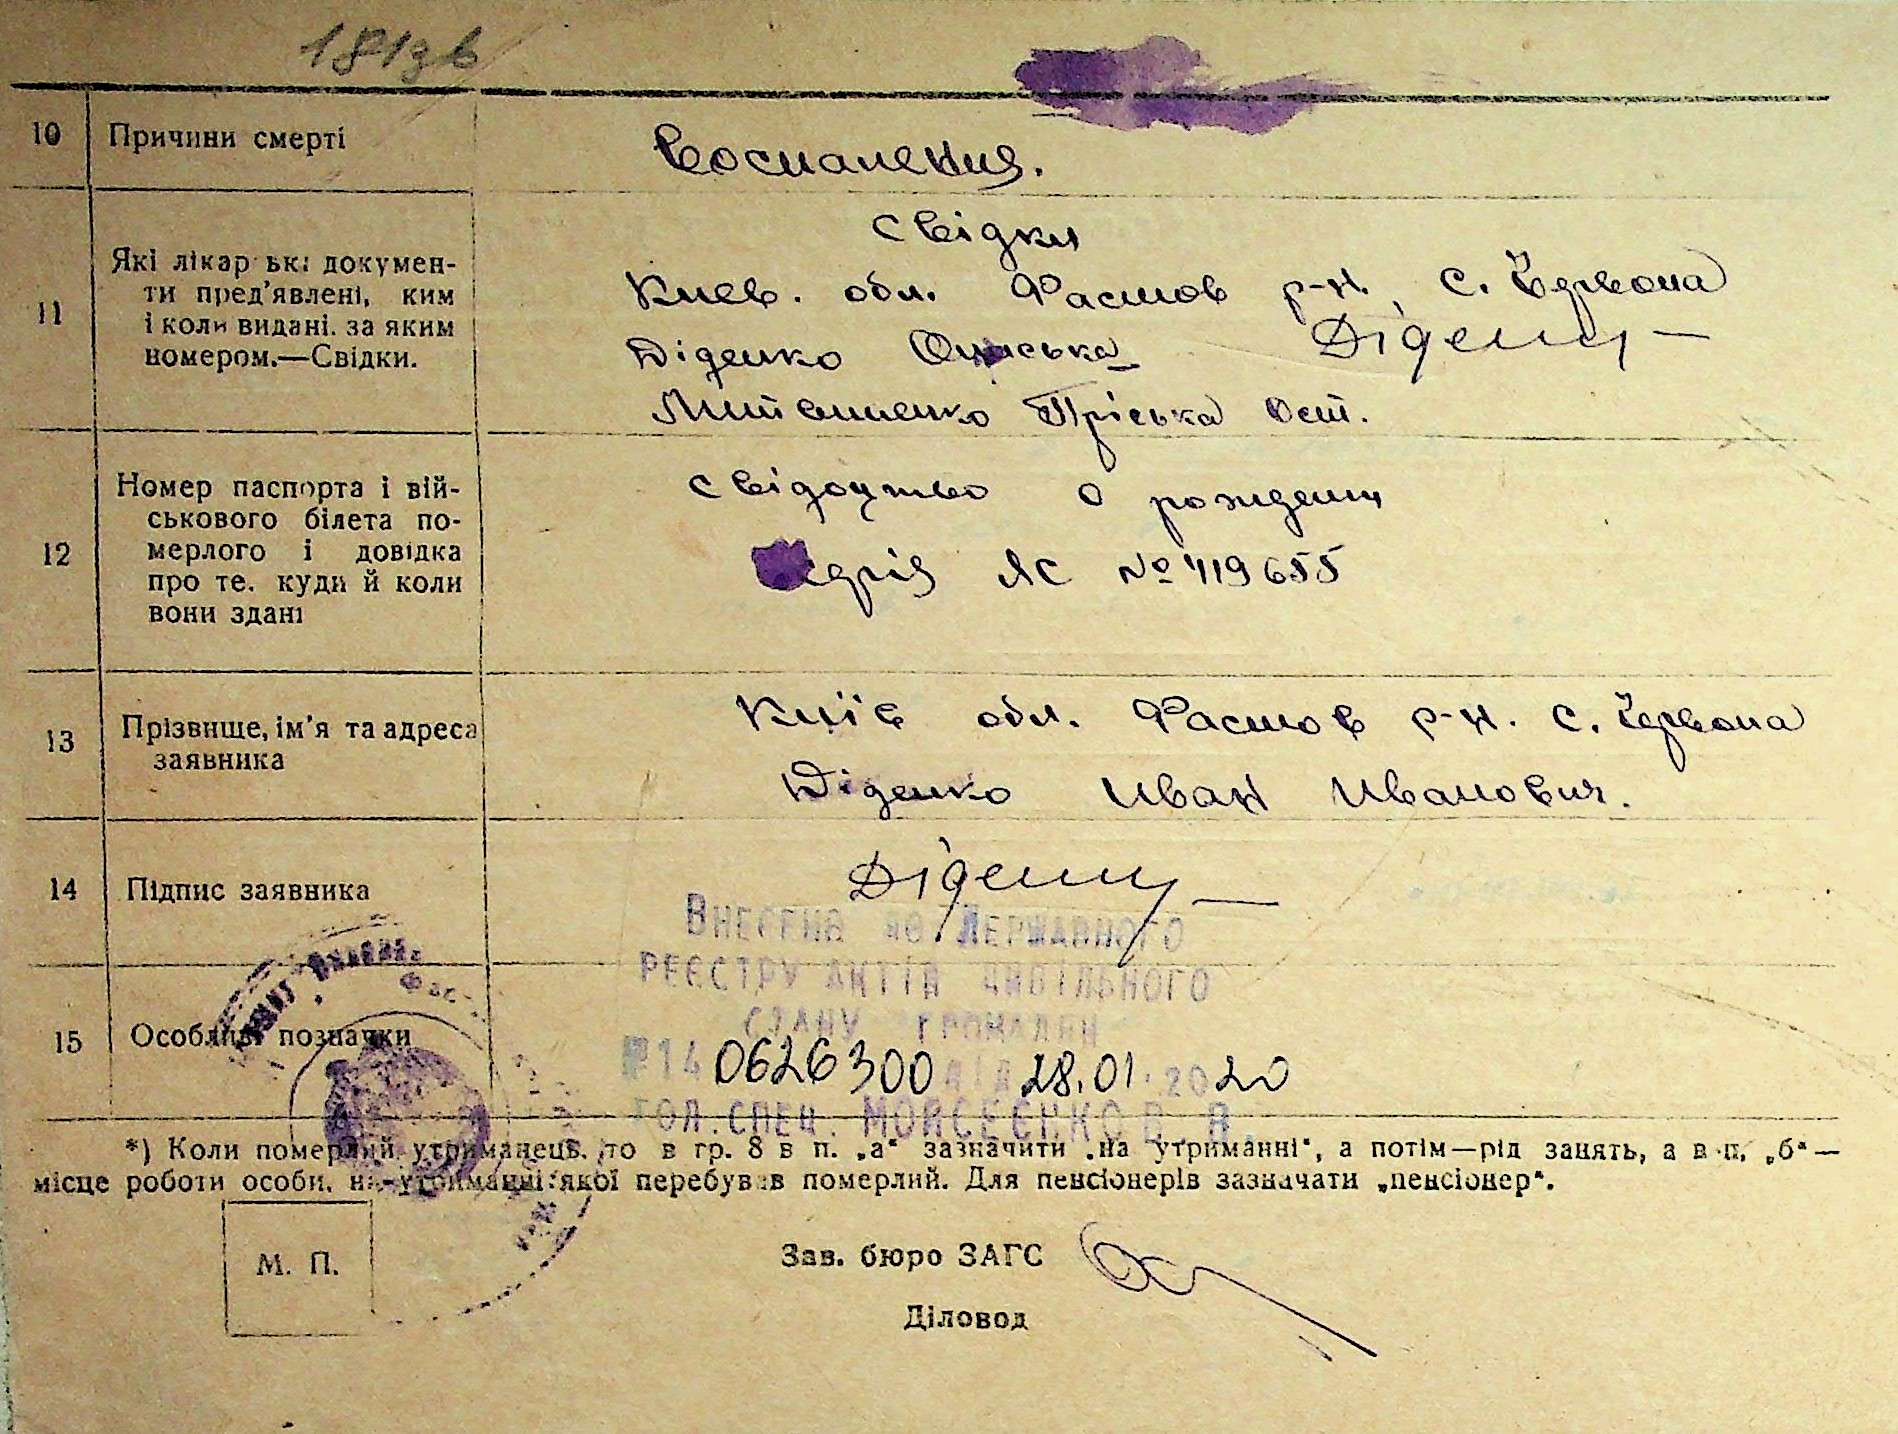 181зв
10 Причини смерті
Воспаления.
11 Які лікарські докумен-
ти пред'явлені, ким
і коли видані. за яким
номером.—Свідки.
Свідки
Киев. обл. Фастов р-н, С. Червона
Діденко Дідену
Приська Ост.
12 Номер паспорта і вій-
ськового білета по-
мерлого і довідка
про те. куди й коли
вони здані
свідоцтво о рождении
серія ЯС № 419655
13 Прізвище, ім'я та адреса
заявника
Київ обл. Фастов р-н. с. Червона
Діденко Иван Иванович.
14 Підпис заявника
Дідену
Внесено до Державного
реєстру актів цивільного
стану громадян
15 Особливі позначки
№14 0626300 від 28.01.2020
гол.спец. Мойсеєнко В.А.
*) Коли померлий утриманець, то в гр. 8 в п. „а“ зазначити „на утриманні“, а потім—рід занять, а в п. „б“—
місце роботи особи, на утриманні якої перебував померлий. Для пенсіонерів зазначати „пенсіонер“.
М. П.
Зав. бюро ЗАГС
Діловод